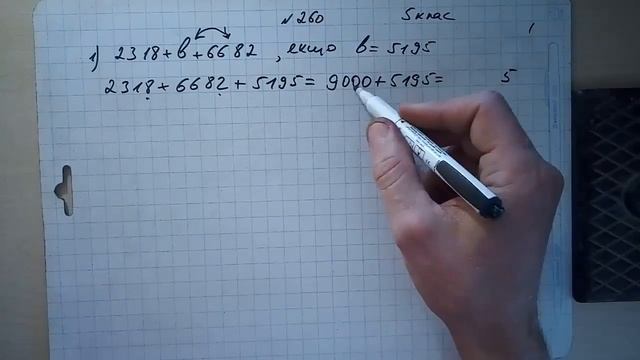 №260 5 клас
1) 2318+b+6682 , якщо b=5195
2318+6682+5195=9000+5195= 5